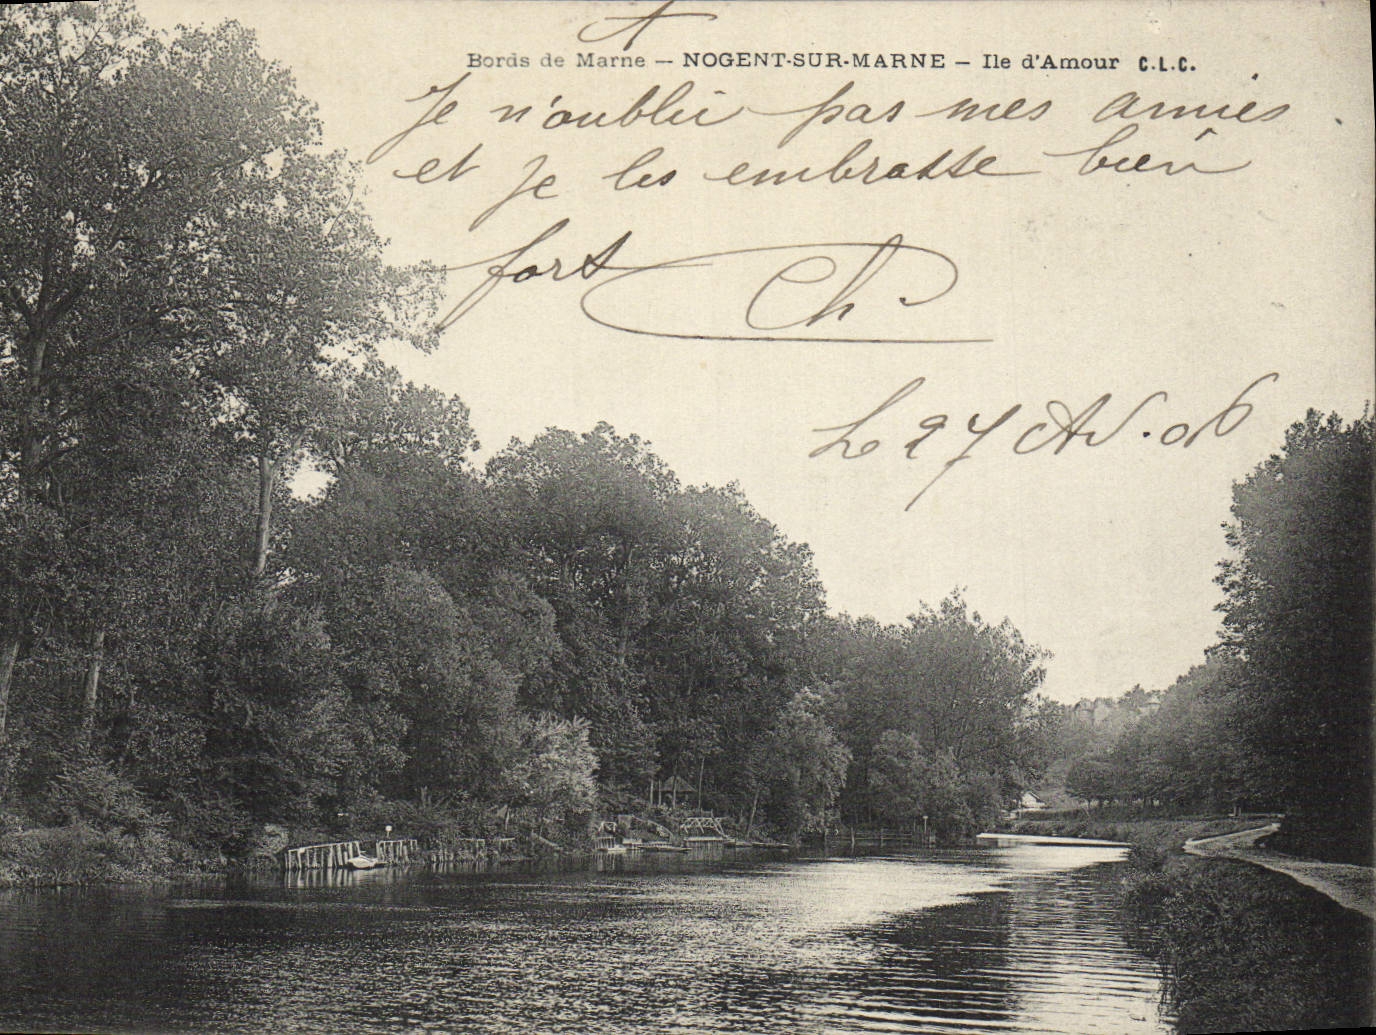 Bords de Marne — NOGENT-SUR-MARNE — Ile d'Amour C.L.C.
Je n'oublie pas mes amies
et je les embrasse bien
fort Ch.
Le 27 Av. 06